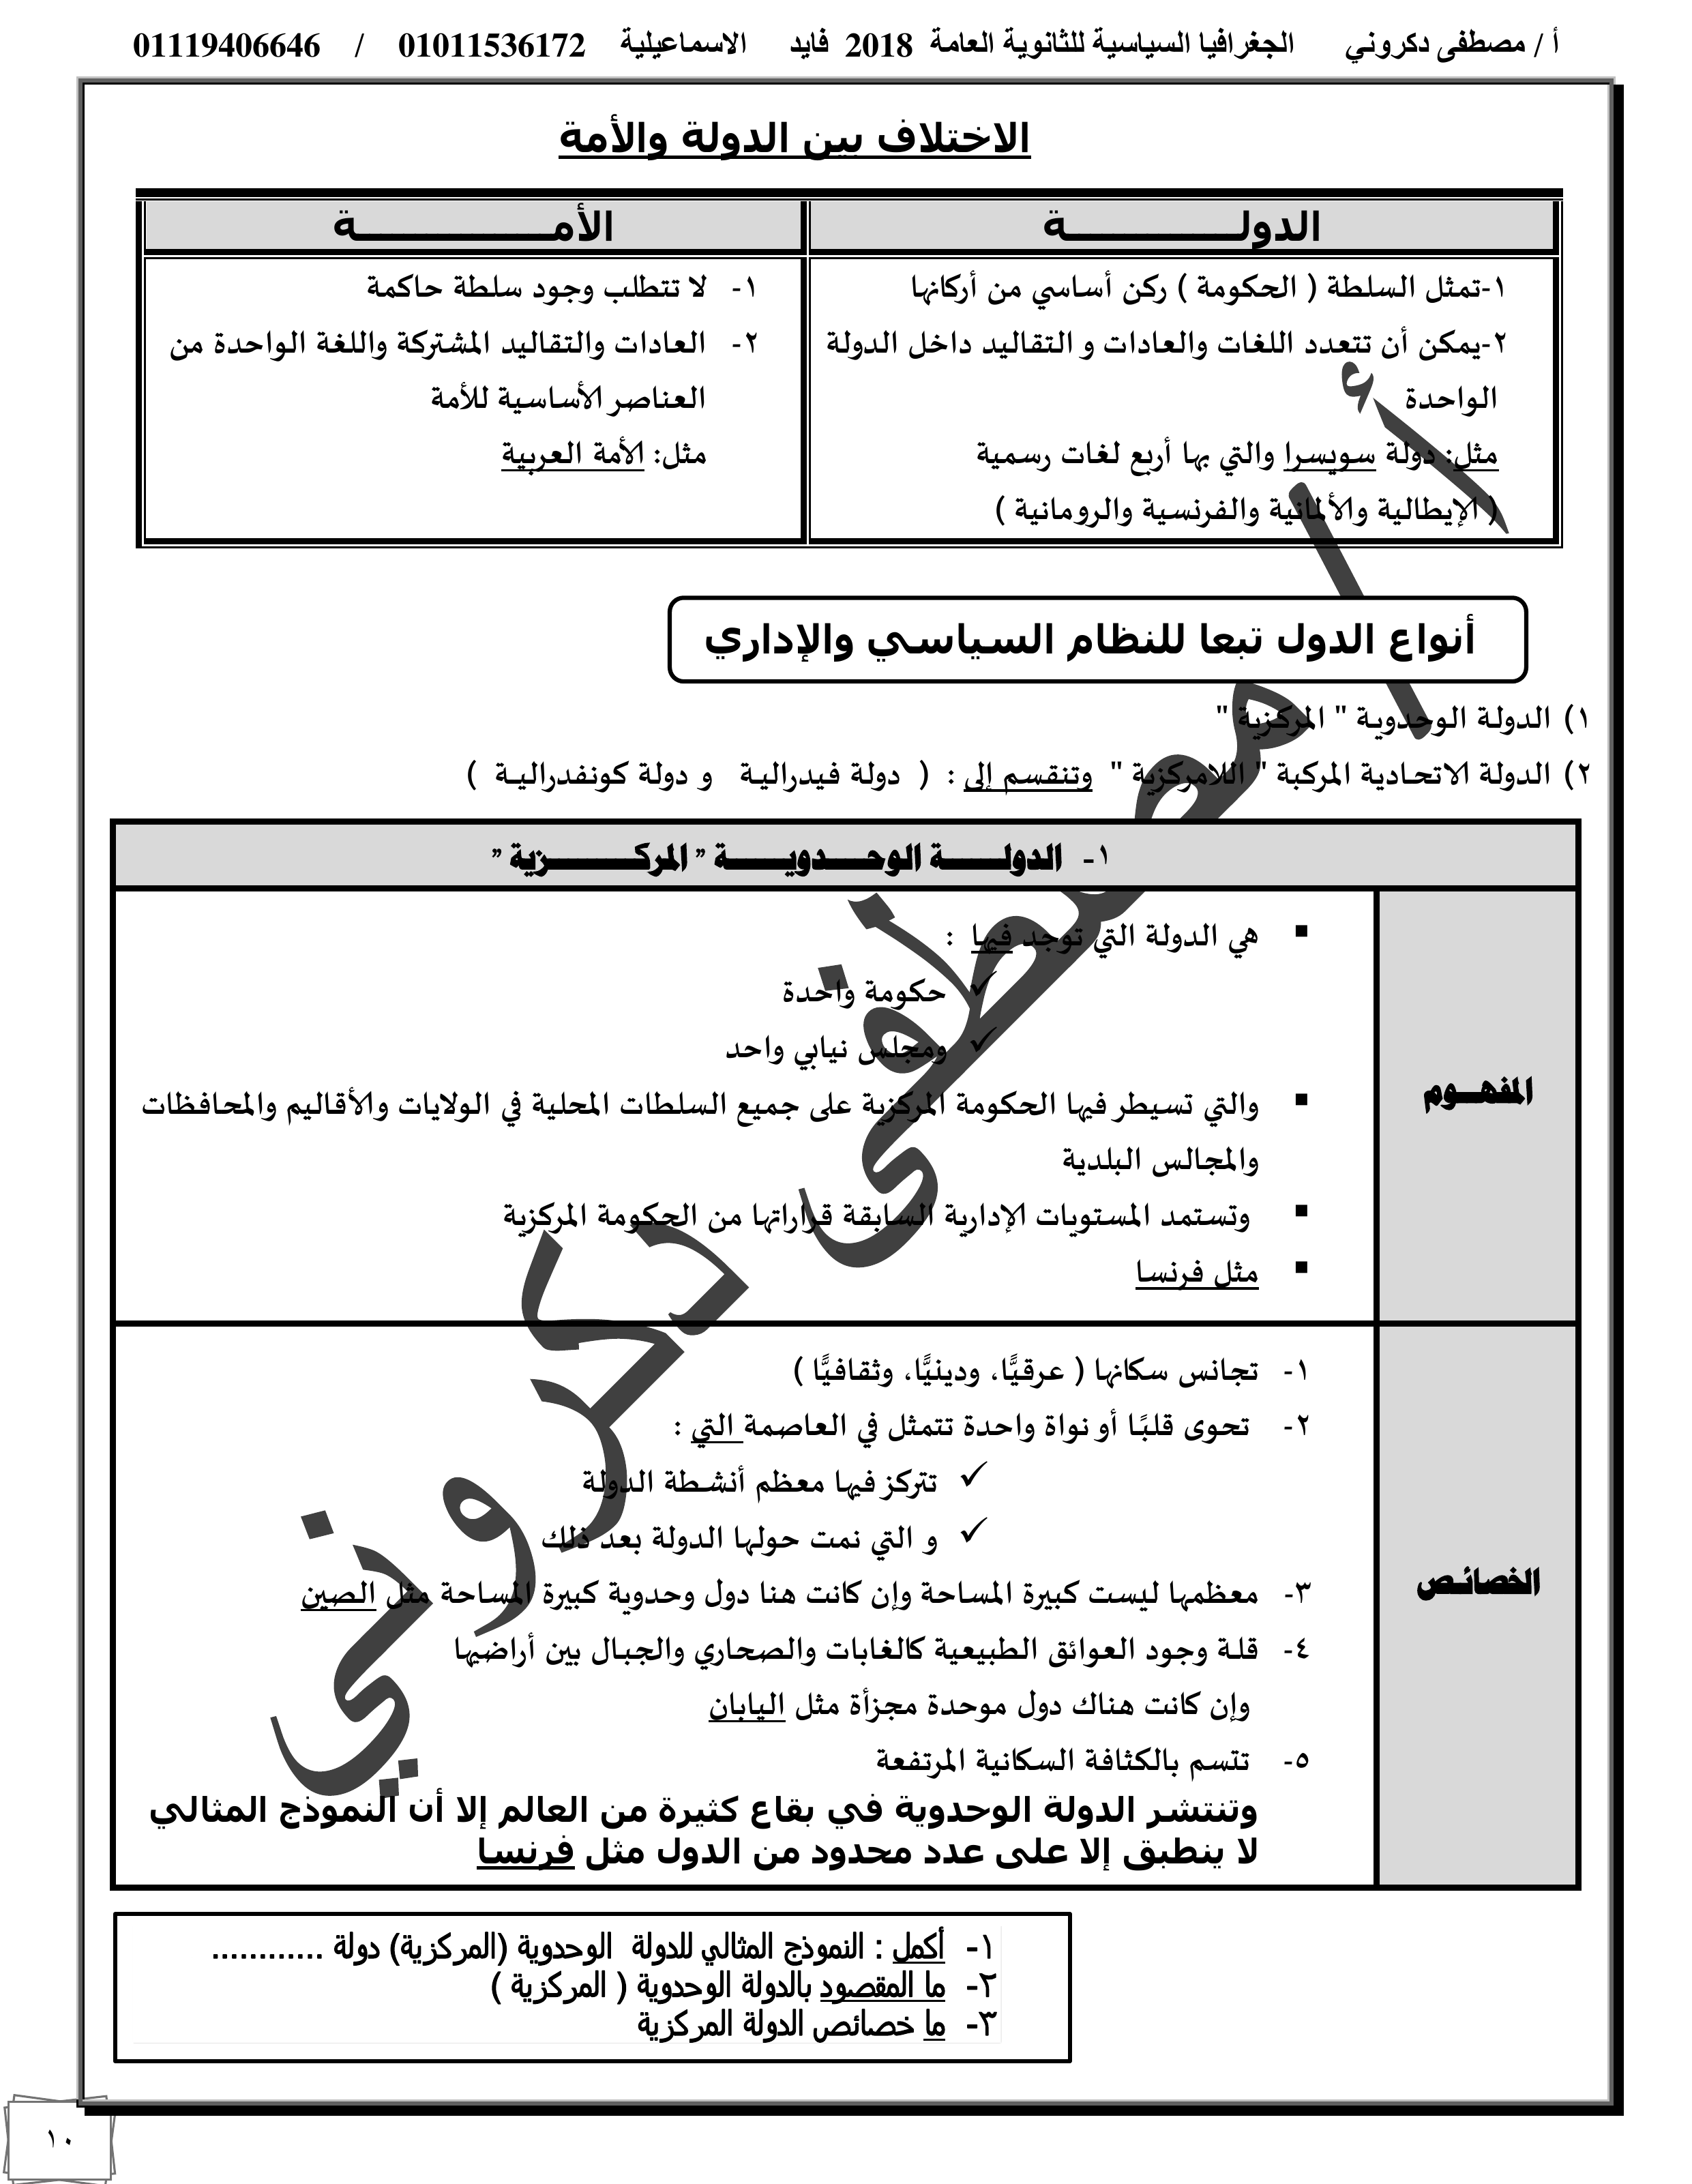 أ / مصطفى دكروني الجغرافيا السياسية للثانوية العامة 2018 فايد الاسماعيلية 01011536172 / 01119406646
الاختلاف بين الدولة والأمة
الدولـــــــــــــة
١-تمثل السلطة ( الحكومة ) ركن أساسي من أركانها
٢-يمكن أن تتعدد اللغات والعادات و التقاليد داخل الدولة
الواحدة
مثل: دولة سويسرا والتي بها أربع لغات رسمية
( الإيطالية والألمانية والفرنسية والرومانية )
الأمـــــــــــــــة
١- لا تتطلب وجود سلطة حاكمة
٢- العادات والتقاليد المشتركة واللغة الواحدة من
العناصر الأساسية للأمة
مثل: الأمة العربية
أنواع الدول تبعا للنظام السياسي والإداري
١) الدولة الوحدوية " المركزية "
٢) الدولة الاتحادية المركبة " اللامركزية " وتنقسم إلى : ( دولة فيدرالية و دولة كونفدرالية )
١- الدولـــــة الوحــــدويــــــة " المركــــــــزية "
المفهـــوم
▪ هي الدولة التي توجد فيها :
✓ حكومة واحدة
✓ ومجلس نيابي واحد
▪ والتي تسيطر فيها الحكومة المركزية على جميع السلطات المحلية في الولايات والأقاليم والمحافظات
والمجالس البلدية
▪ وتستمد المستويات الإدارية السابقة قراراتها من الحكومة المركزية
▪ مثل فرنسا
الخصائـص
١- تجانس سكانها ( عرقيًّا، ودينيًّا، وثقافيًّا )
٢- تحوى قلبًا أو نواة واحدة تتمثل في العاصمة التي :
✓ تتركز فيها معظم أنشطة الدولة
✓ و التي نمت حولها الدولة بعد ذلك
٣- معظمها ليست كبيرة المساحة وإن كانت هنا دول وحدوية كبيرة المساحة مثل الصين
٤- قلة وجود العوائق الطبيعية كالغابات والصحاري والجبال بين أراضيها
وإن كانت هناك دول موحدة مجزأة مثل اليابان
٥- تتسم بالكثافة السكانية المرتفعة
وتنتشر الدولة الوحدوية في بقاع كثيرة من العالم إلا أن النموذج المثالي
لا ينطبق إلا على عدد محدود من الدول مثل فرنسا
١- أكمل : النموذج المثالي للدولة الوحدوية (المركزية) دولة ............
٢- ما المقصود بالدولة الوحدوية ( المركزية )
٣- ما خصائص الدولة المركزية
أ / مصطفى دكروني
١٠